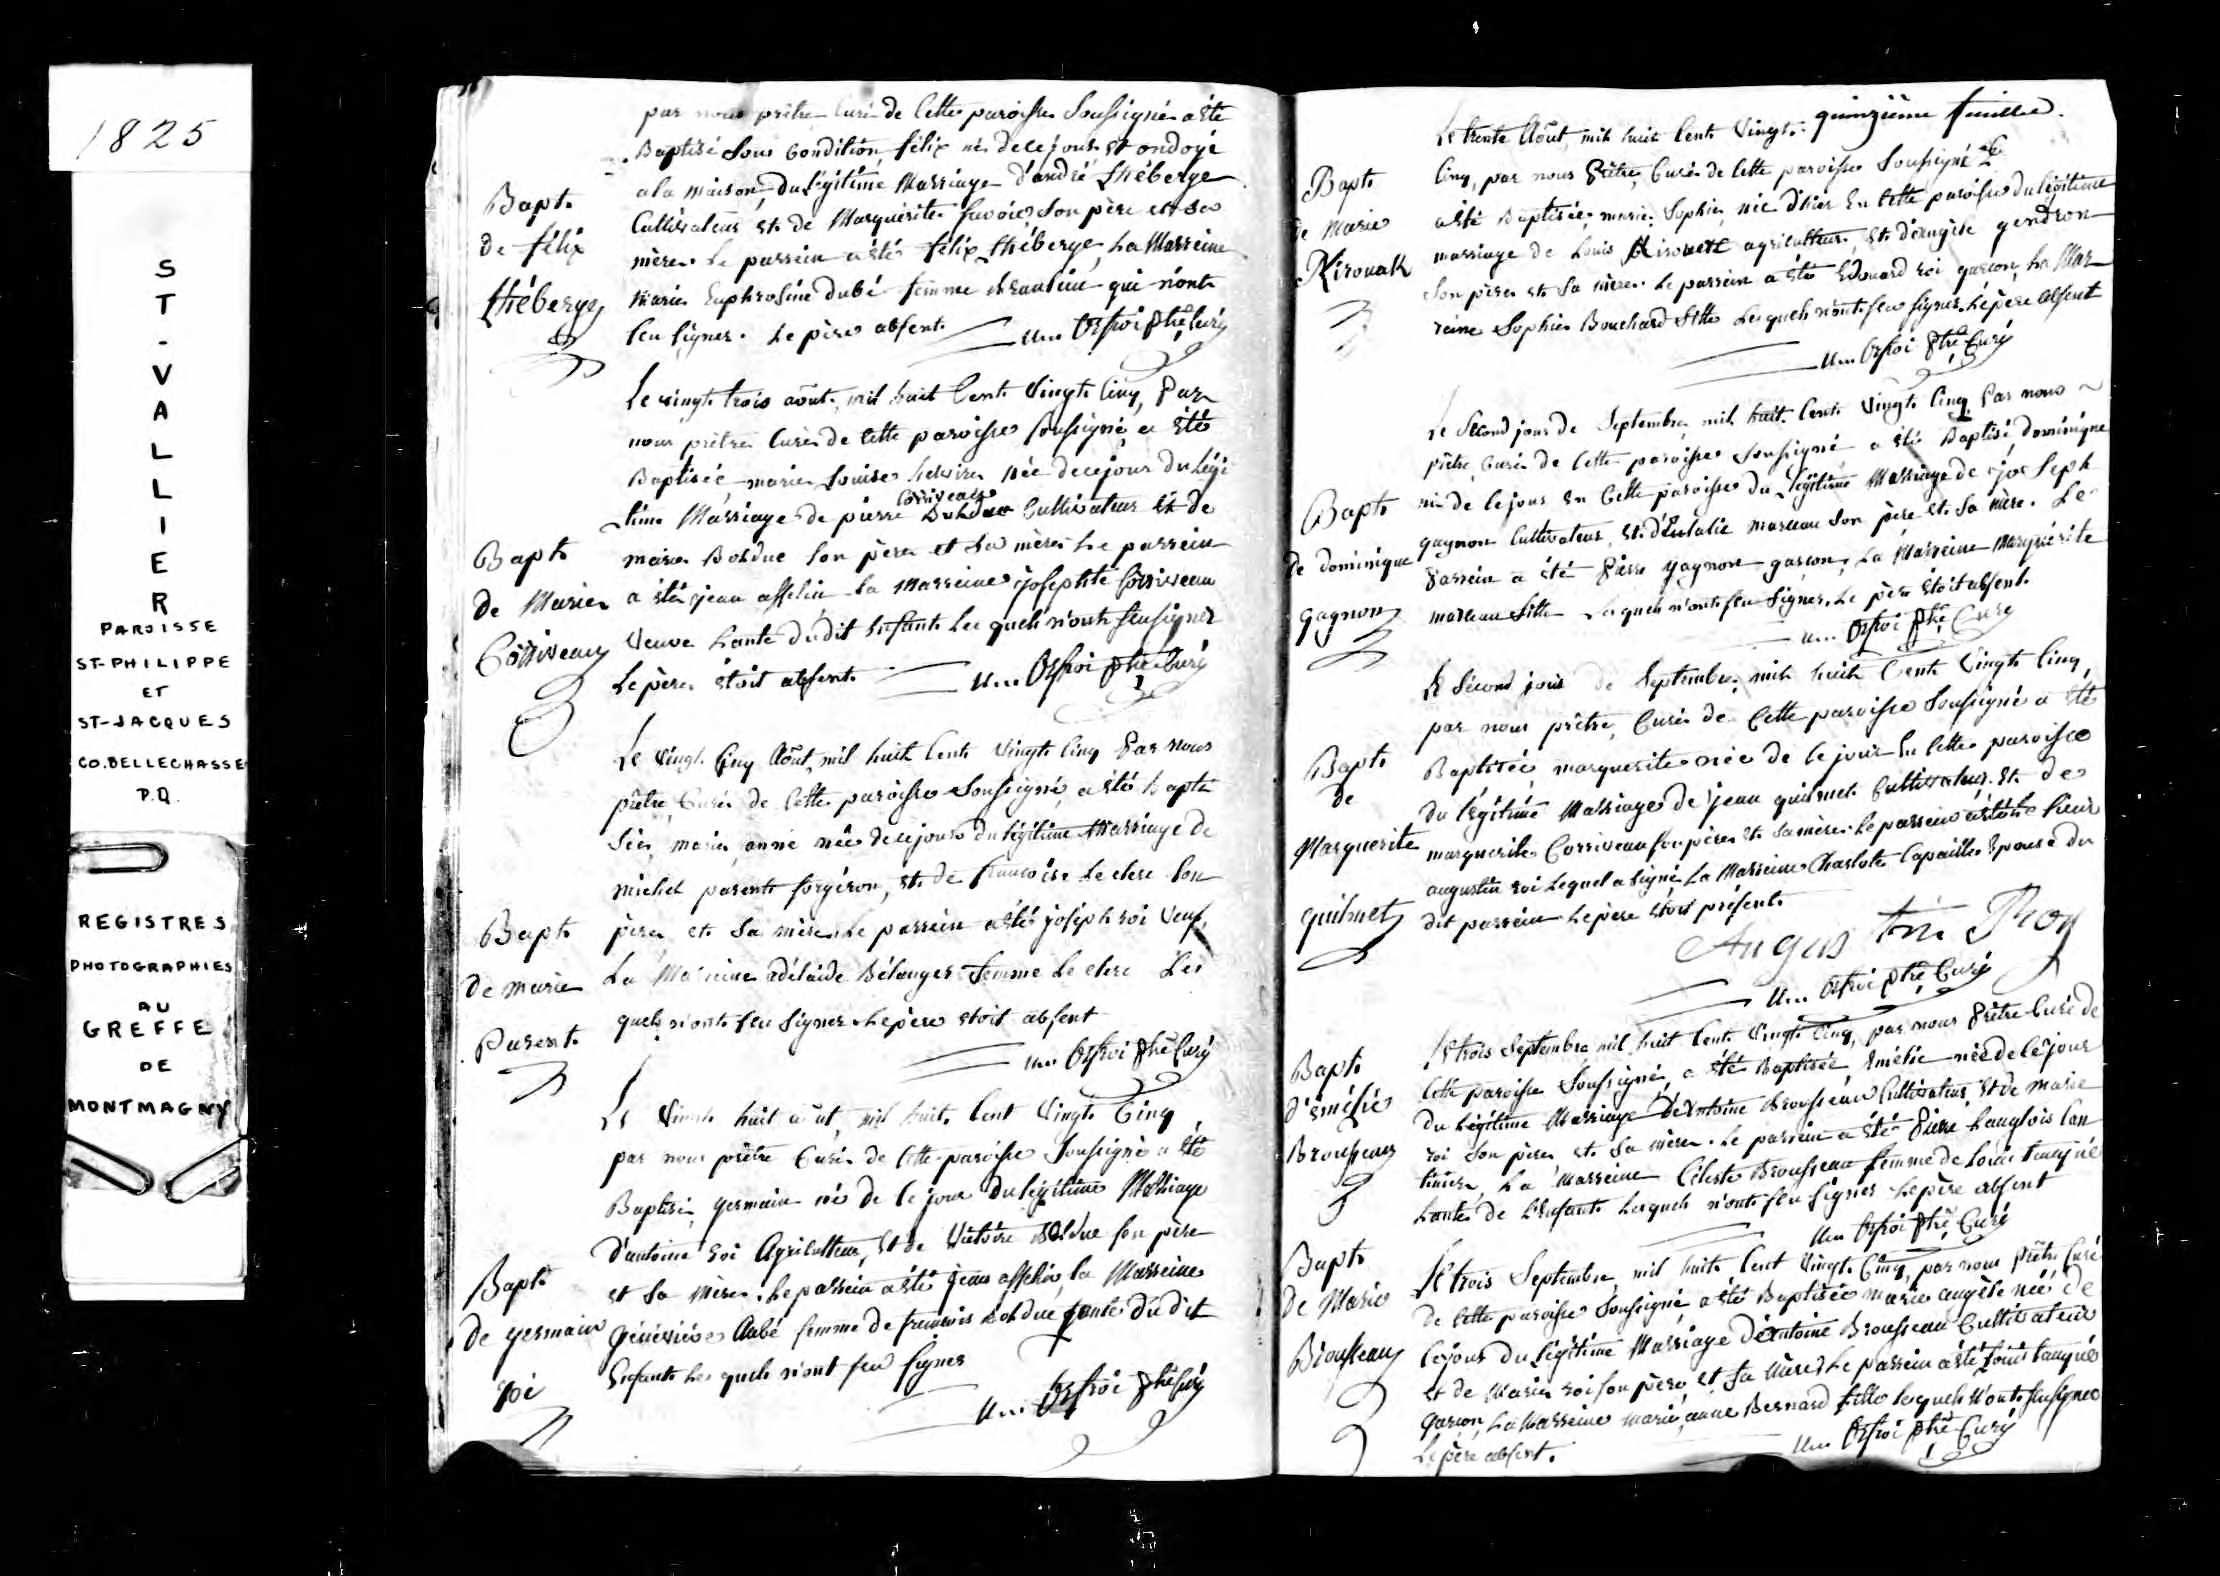 1825
ST-VALLIER
PAROISSE
ST-PHILIPPE
ET
ST-JACQUES
CO. BELLECHASSE
P.Q.
REGISTRES
PHOTOGRAPHIES
AU
GREFFE
DE
MONTMAGNY
par nous prêtre Curé de Cette paroisse Soussigné a été
Baptisé Sous Condition félix né de ce jour et ondoyé
a la maison, du légitime Marriage d'andré thèberge
Cultivateur et de Marguérite Savoie Son père et sa
mère. Le parrein a été félix thèberge, La Marreine
Marie Euphrosine dubé femme qui n'ont
seu signer. Le père absent.
Ls. Orfroi Ptre Curé
Bapt.
de félix
thèberge
Le vingt trois aôut mil huit Cent Vingt Cinq, Par
nous prêtre Curé de Cette paroisse soussigné a été
Baptisée marie Louise née de ce jour du légi
Corriveau
time Marriage de pierre Cultivateur et de
marie Bolduc Son père et Sa mère Le parrein
a été jean asselin La Marreine josephte Corriveau
Veuve tante du dit Enfant Les quels n'ont seu signer
Le père étoit absent.
Ls. Orfroi Ptre Curé
Bapt
de Marie
Corriveau
Le Vingt Cinq Aôut, mil huit Cent Vingt Cinq Par nous
prêtre Curé de Cette paroisse Soussigné a été bapti
sée, marie anne née de ce jour du légitime Marriage de
michel parent forgéron, et de françoise Leclerc Son
père et Sa mère. Le parrein a été joseph roi Veuf,
La Marreine adélaïde Bélanger femme Le clerc Les
quels n'ont seu Signer Le père étoit absent
Ls. Orfroi Ptre Curé
Bapt
de marie
Parent.
Le Vingt huit aôut, mil huit Cent Vingt Cinq
par nous prêtre Curé de Cette paroisse Soussigné a été
Baptisé, germain né de ce jour du légitime Marriage
d'antoine roi Agriculteur, et de Victoire Bolduc Son père
et Sa mère. Le parrein a été jean asselin, la Marreine
Généviève Aubé femme de francois Bolduc tante du dit
Enfant Les quels n'ont seu signer
Ls. Orfroi Ptre Curé
Bapt
de germain
roi
quinzième feuillet.
Le trente Aôut, mil huit Cent Vingt-
Cinq, par nous Prêtre, Curé de Cette paroisse Soussigné
a été Baptisée, marie Sophie, née d'hier En Cette paroisse du légitime
marriage de Louis Kirouack agriculteur, et d'Angèle gendron
Son père et Sa mère. Le parrein a été Edouard roi garçon, La Mar
reine Sophie Bouchard fille Lesquels n'ont seu signer. Le père absent
Ls. Orfroi Ptre Curé
Bapt
de Marie
Kirouak
Le Second jour de Septembre, mil huit Cent Vingt Cinq Par nous
prêtre Curé de Cette paroisse Soussigné a été Baptisé dominique
né de ce jour En Cette paroisse du légitime Marriage de joseph
gagnon Cultivateur, et d'Eulalie marceau Son père et Sa mère. Le
Parrein a été Pierre gagnon garcon, La Marreine Marguérite
marceau fille Lesquels n'ont seu Signer. Le père étoit absent.
Ls. Orfroi Ptre Curé
Bapt
de dominique
gagnon
Le Second jour de Septembre, mil huit Cent Vingt Cinq,
par nous prêtre, Curé de Cette paroisse Soussigné a été
Baptisée, marguerite née de ce jour En Cette paroisse
du légitime Marriage de jean quémet Cultivateur et de
marguerite Corriveau Son père et Sa mère. Le parrein a été le Sieur
augustin roi Lequel a Signé La Marreine Charlote Lapaille Epouse du
dit parrein Le père étoit présent
Augustin Roy
Ls. Orfroi Ptre Curé
Bapt
de
Marguerite
quémet
Le trois Septembre mil huit Cent Vingt Cinq, par nous Prêtre Curé de
Cette paroisse Soussigné, a été Baptisée Emélie née de Ce jour
du légitime Marriage d'Antoine Brousseau Cultivateur, et de Marie
roi Son père et Sa mère. Le parrein a été Pierre Langlois Can
tinier, La Marreine Céleste Brousseau femme de Louis tanguè
tante de L'Enfant Lesquels n'ont seu signer Le père absent
Ls. Orfroi Ptre Curé
Bapt
d'émélie
Brousseau
Le trois Septembre, mil huit Cent Vingt Cinq, par nous Prêtre Curé
de Cette paroisse Soussigné, a été Baptisée marie angèle née de
Ce jour du Légitime Marriage d'Antoine Brousseau Cultivateur
et de Marie roi Son père, et Sa Mère Le parrein a été Louis tanguè
garçon, La Marreine marie anne Bernard fille lesquels n'ont seu signer
Le père absent.
Ls. Orfroi Ptre Curé
Bapt
de Marie
Brousseau